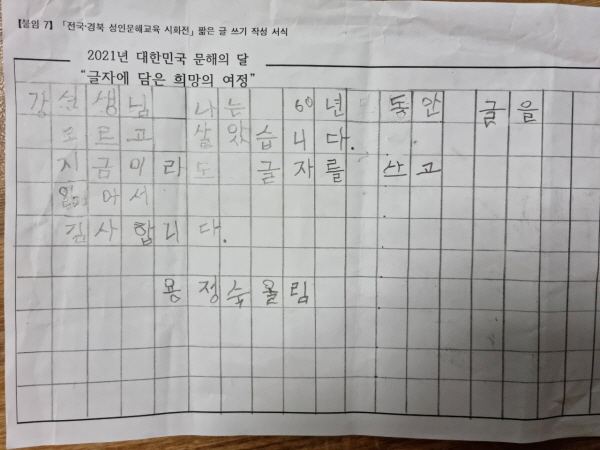 【붙임 7】 「전국·경북 성인문해교육 시화전」 짧은 글 쓰기 작성 서식
2021년 대한민국 문해의 달
“글자에 담은 희망의 여정”
강선생님 나는 60년 동안 금을
모르고 살았습니다.
지금이라도 글자를 산고
마서
김사합니다.
용정숙올림